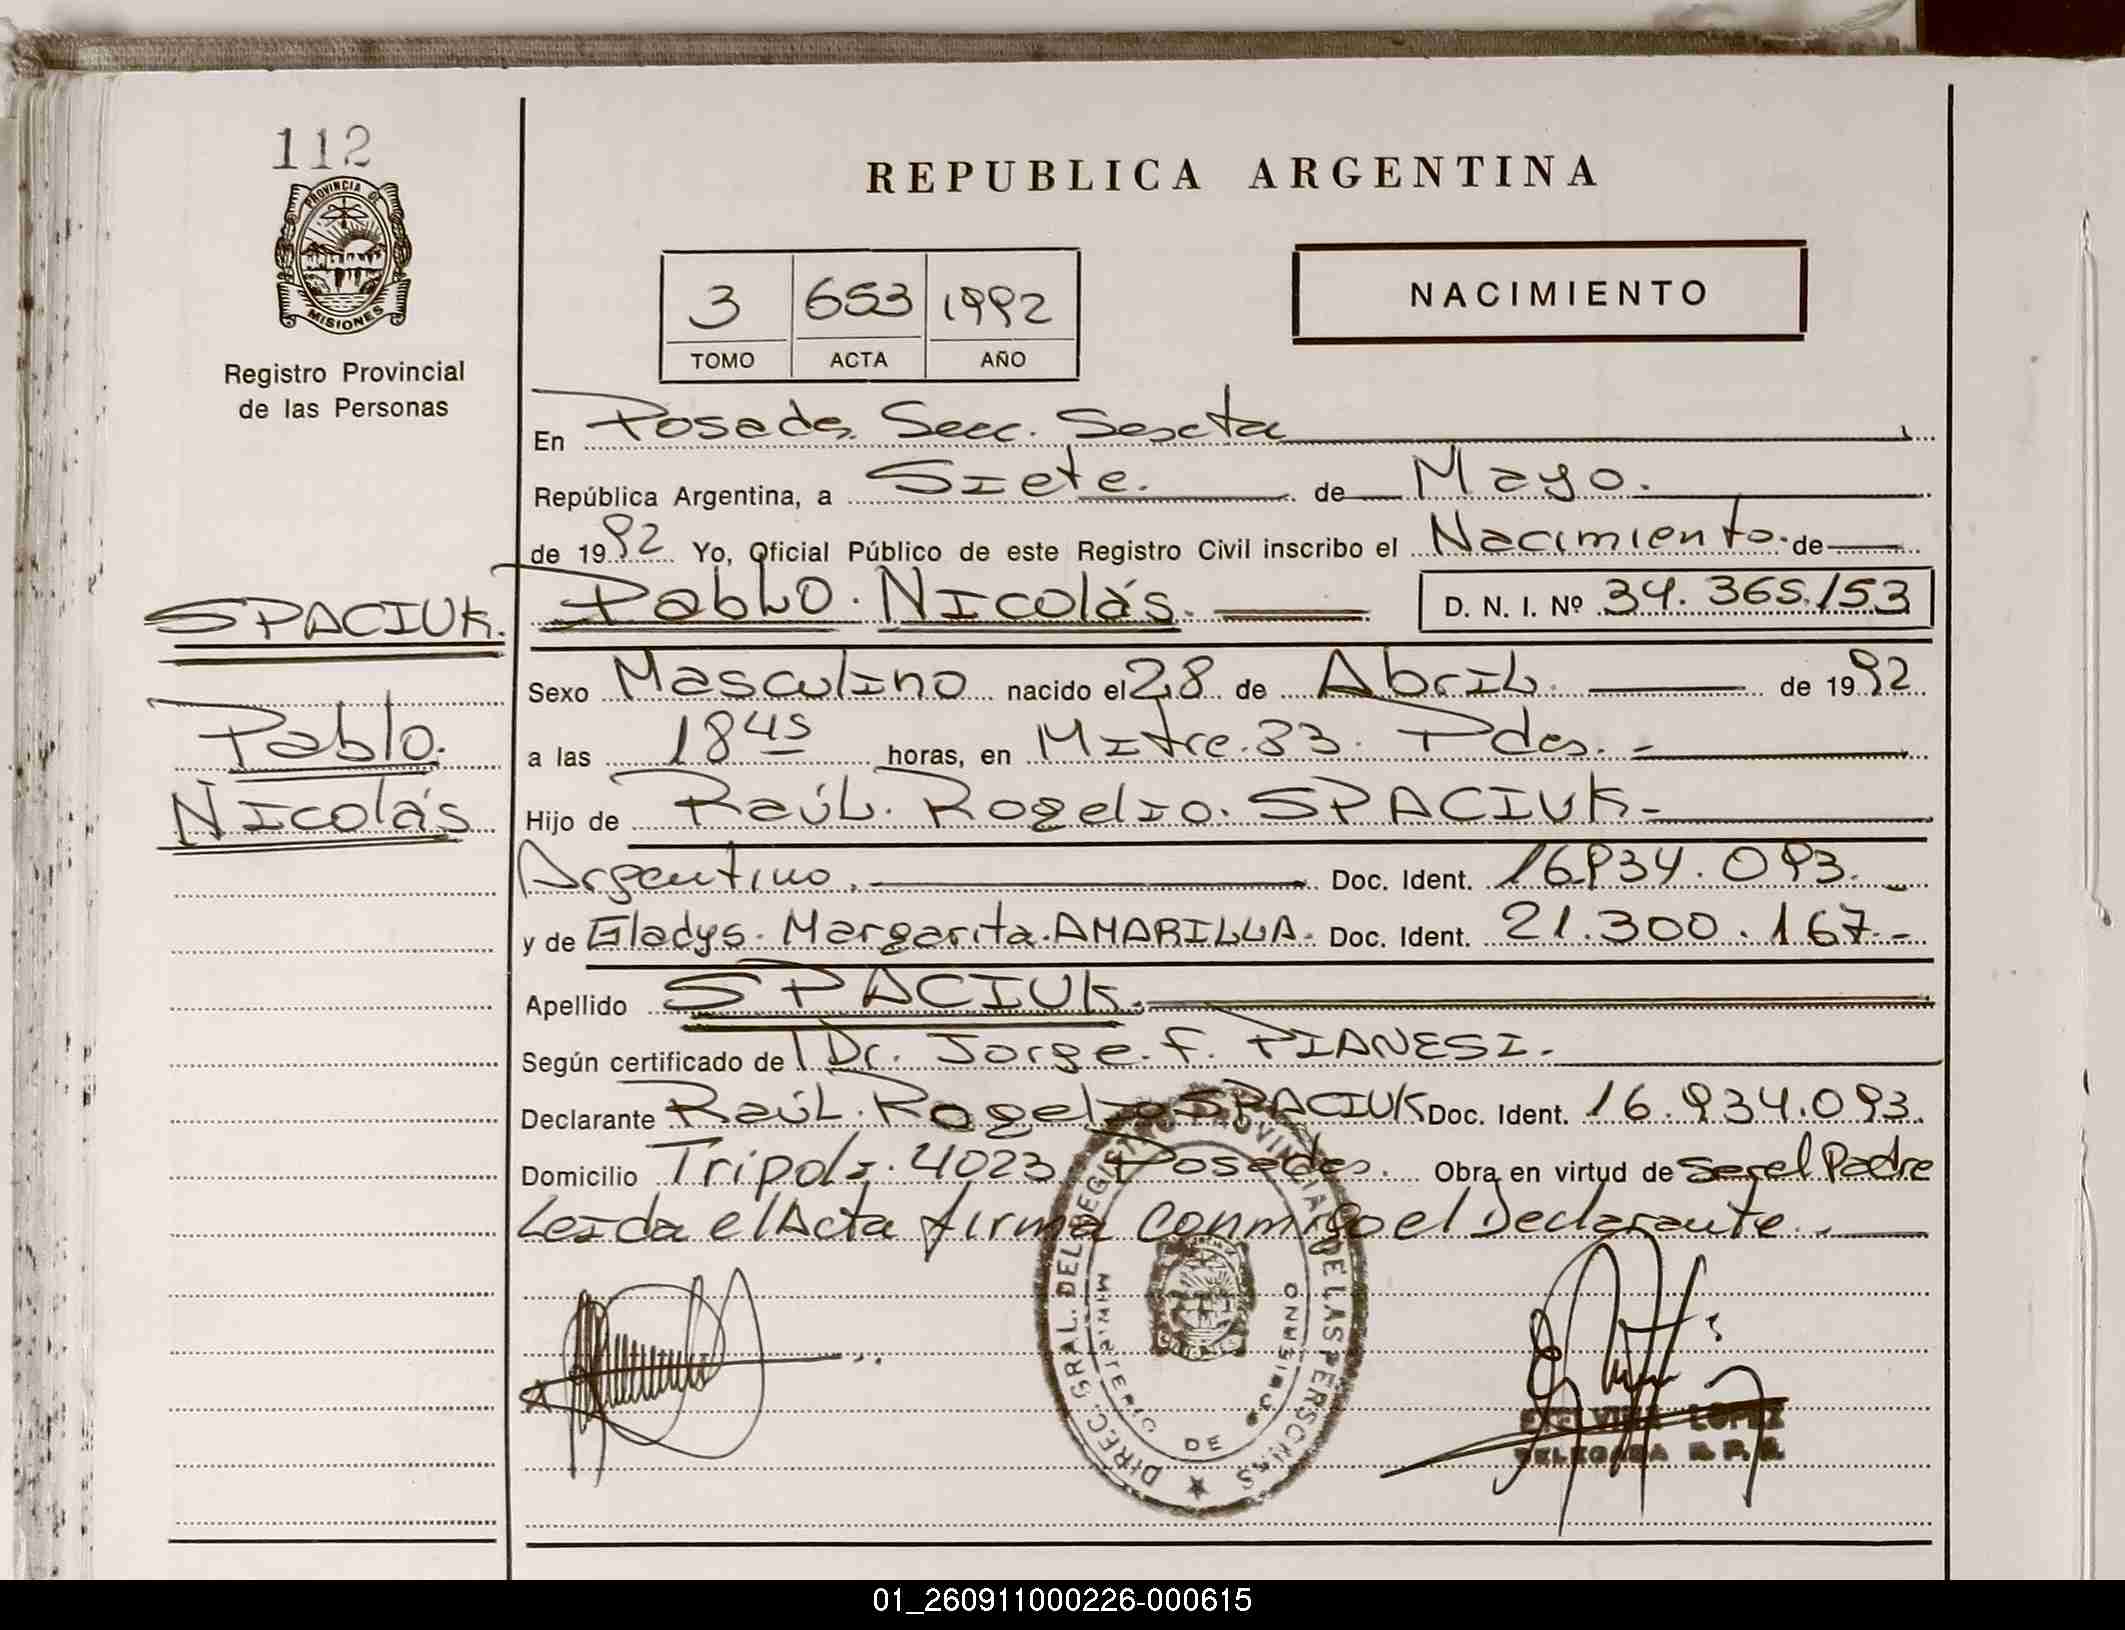 112
PROVINCIA DE
MISIONES
Registro Provincial
de las Personas
REPUBLICA ARGENTINA
3 653 1992
TOMO ACTA AÑO
NACIMIENTO
En Posadas Secc. Sexta
República Argentina, a Siete. de Mayo.
de 1992 Yo, Oficial Público de este Registro Civil inscribo el Nacimiento. de
SPACIUK.
Pablo.
Nicolás
Pablo. Nicolás. D. N. I. Nº 34.365.153
Sexo Masculino nacido el 28 de Abril. de 1992
a las 18 45 horas, en Mitre. 33. Pdas.
Hijo de Raúl. Rogelio. SPACIUK
Argentino. Doc. Ident. 16.934.093.
y de Gladys. Margarita. AMARILLA. Doc. Ident. 21.300.167.-
Apellido SPACIUK.
Según certificado de Dr. Jorge. F. PIANESI.
Declarante Raúl. Rogelio SPACIUK Doc. Ident. 16.934.093.
Domicilio Tripoli. 4023 Posadas. Obra en virtud de ser el Padre
Leida el Acta firma conmigo el Declarante.
DIREC. GRAL. DEL REGISTRO PROVINCIAL DE LAS PERSONAS
MINISTERIO DE GOBIERNO
LOPEZ
DELEGADA R. P. P.
01_260911000226-000615